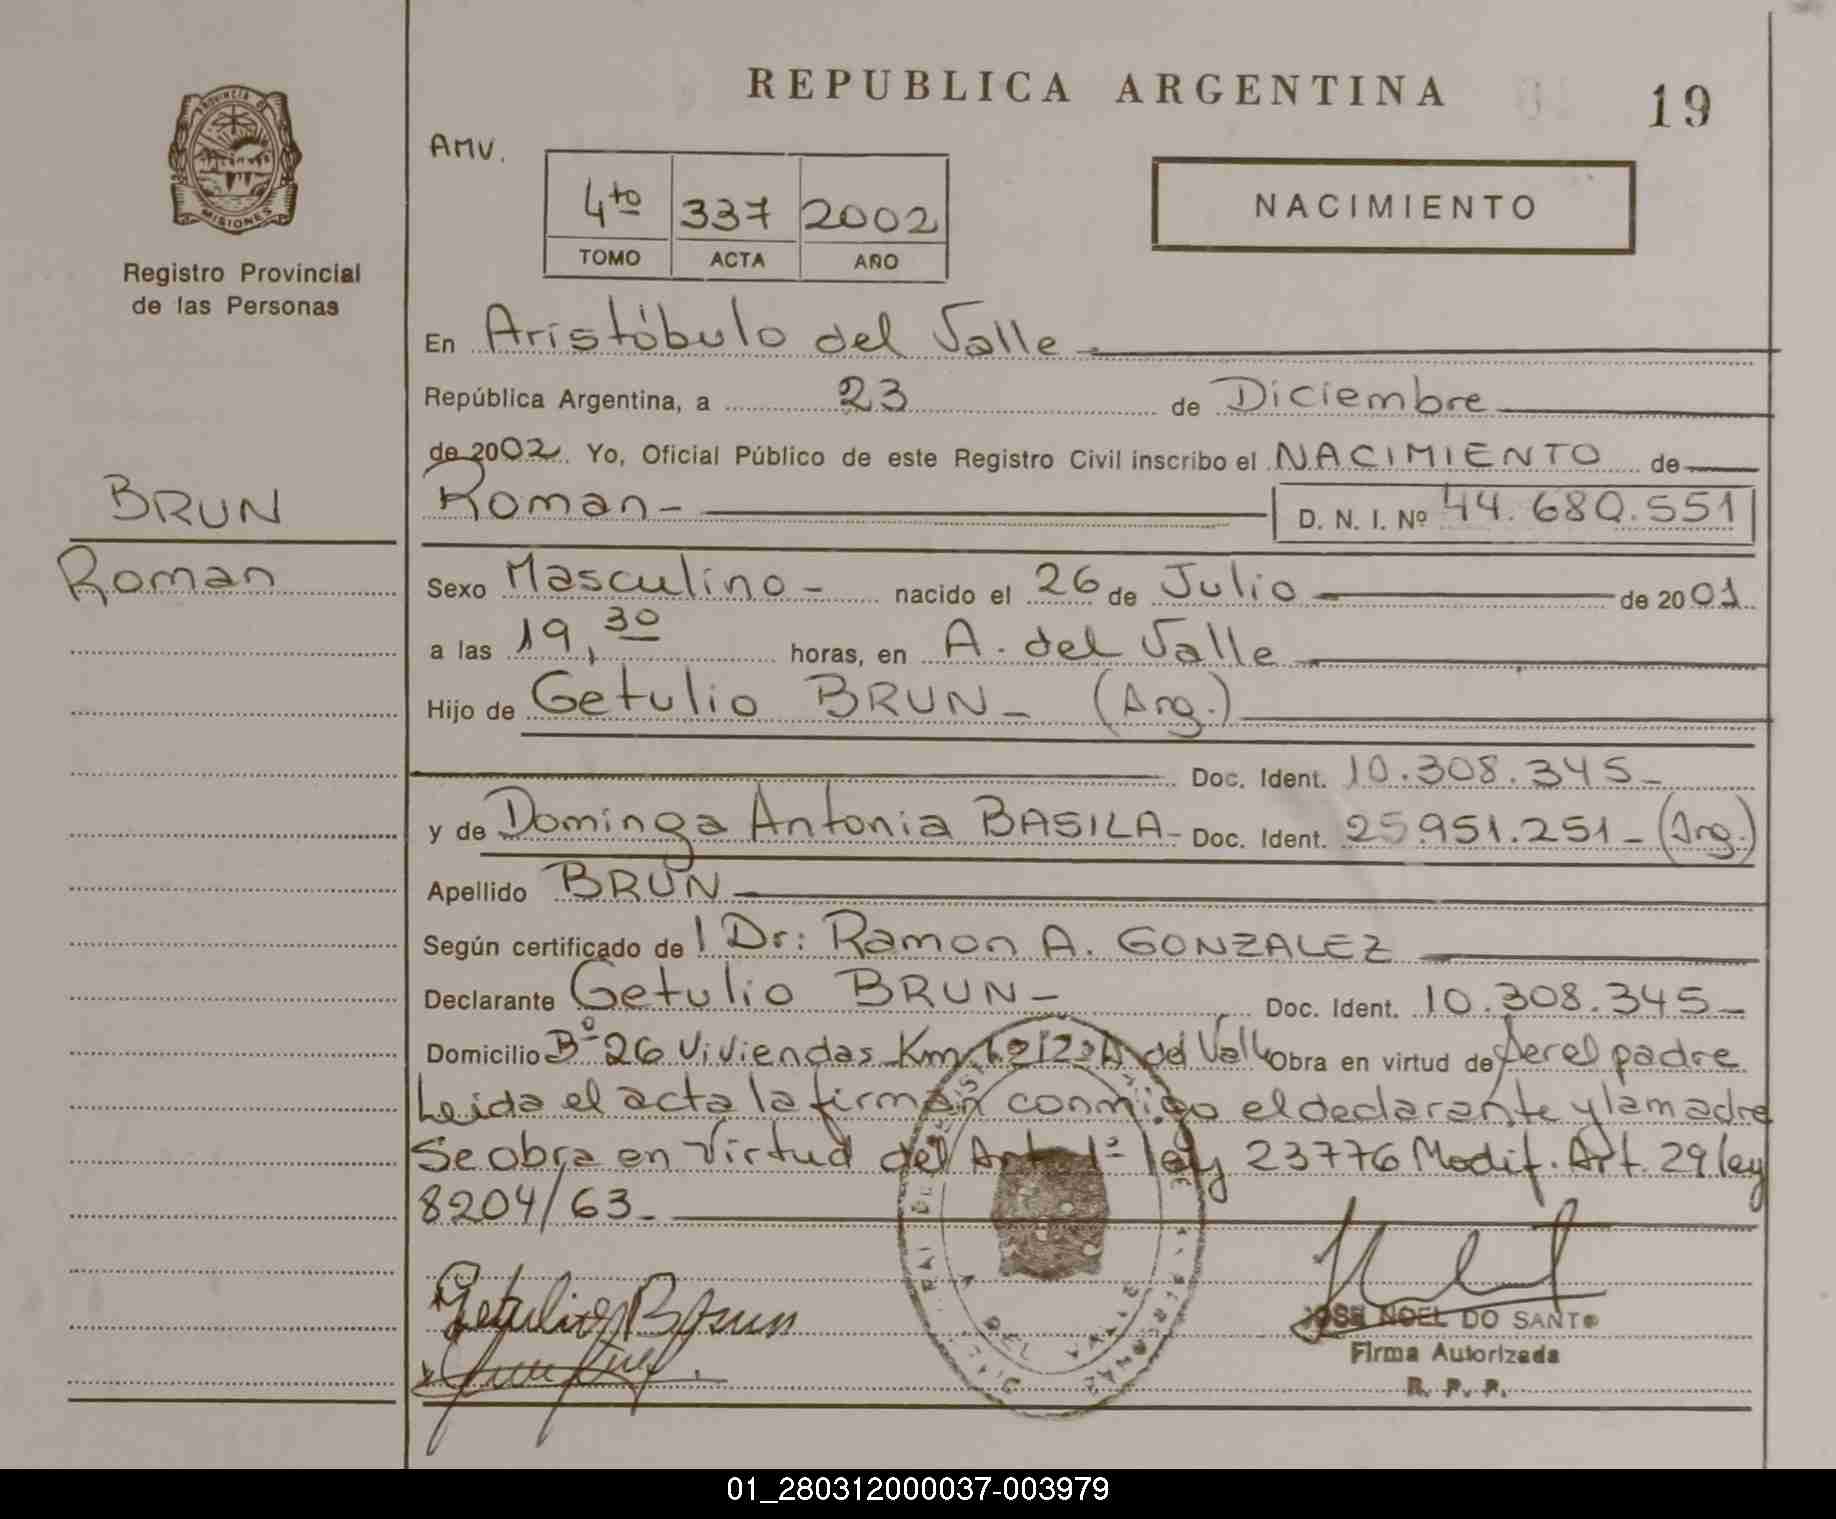 REPUBLICA ARGENTINA
19
PROVINCIA DE
MISIONES
Registro Provincial
de las Personas
AMV.
4to 337 2002
TOMO ACTA AÑO
NACIMIENTO
En Aristóbulo del Valle
República Argentina, a 23 de Diciembre
de 2002. Yo, Oficial Público de este Registro Civil inscribo el NACIMIENTO de
Roman - D. N. I. Nº 44.680.551
BRUN
Roman
Sexo Masculino - nacido el 26 de Julio de 2001
a las 19,30 horas, en A. del Valle
Hijo de Getulio BRUN - (Arg.)
Doc. Ident. 10.308.345 -
y de Dominga Antonia BASILA - Doc. Ident. 25.951.251 - (Arg.)
Apellido BRUN
Según certificado de l Dr: Ramon A. GONZALEZ
Declarante Getulio BRUN - Doc. Ident. 10.308.345 -
Domicilio Bº 26 Viviendas Km. del Valle Obra en virtud de ser el padre
Leida el acta la firman conmigo el declarante y la madre
Se obra en Virtud del Art. 1º ley 23776 Modif. Art. 29 ley
8204/63 -
Getulio Brun
JOSE NOEL DO SANTO
Firma Autorizada
R. P. P.
A DEL VALLE
01_280312000037-003979